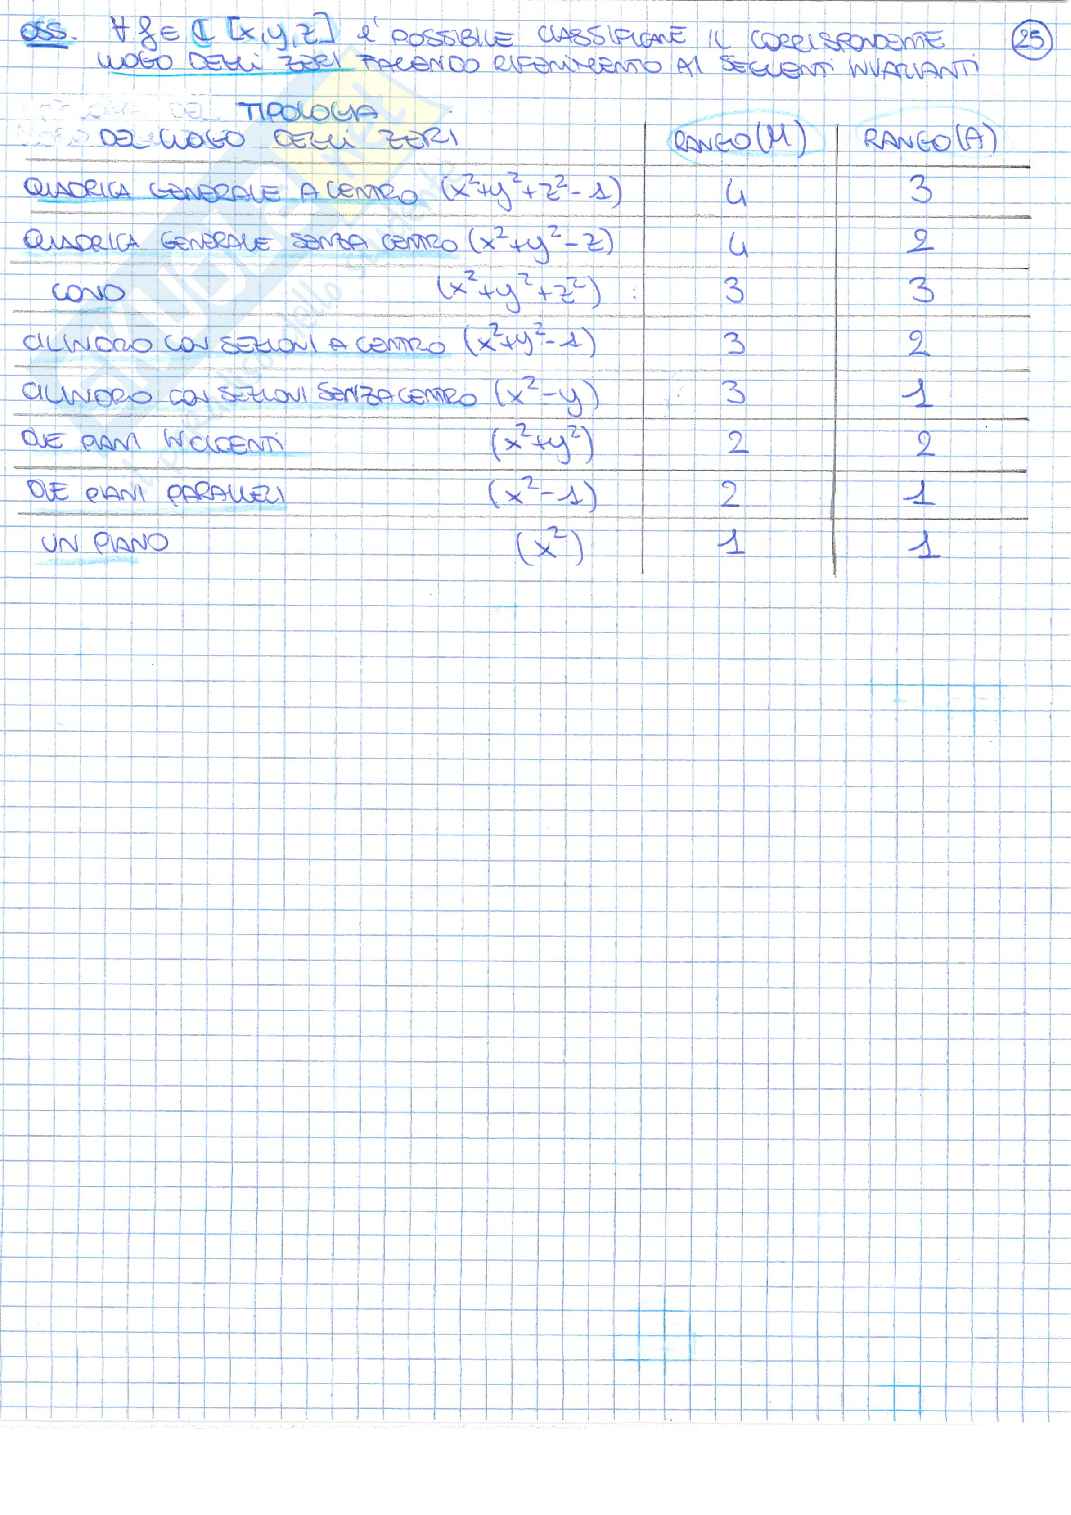 OSS. ∀ f ∈ ℂ [x,y,z] è POSSIBILE CLASSIFICARE IL CORRISPONDENTE 25
LUOGO DEGLI ZERI FACENDO RIFERIMENTO AI SEGUENTI INVARIANTI
TIPOLOGIA
DEL LUOGO DEGLI ZERI RANGO(M) RANGO(A)
QUADRICA GENERALE A CENTRO (x²+y²+z²-1) 4 3
QUADRICA GENERALE SENZA CENTRO (x²+y²-z) 4 2
CONO (x²+y²+z²) 3 3
CILINDRO CON SEZIONI A CENTRO (x²+y²-1) 3 2
CILINDRO CON SEZIONI SENZA CENTRO (x²-y) 3 1
DUE PIANI INCIDENTI (x²+y²) 2 2
DUE PIANI PARALLELI (x²-1) 2 1
UN PIANO (x²) 1 1